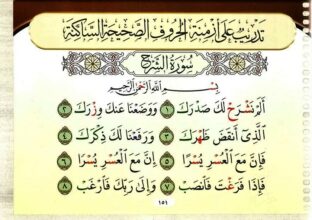 تدريب على أزمنة الحروف الصحيحة الساكنة
سورة الشرح
بسم الله الرحمن الرحيم
أَلَمْ نَشْرَحْ لَكَ صَدْرَكَ ١ وَوَضَعْنَا عَنكَ وِزْرَكَ ٢
الَّذِي أَنقَضَ ظَهْرَكَ ٣ وَرَفَعْنَا لَكَ ذِكْرَكَ ٤
فَإِنَّ مَعَ الْعُسْرِ يُسْرًا ٥ إِنَّ مَعَ الْعُسْرِ يُسْرًا ٦
فَإِذَا فَرَغْتَ فَانصَبْ ٧ وَإِلَى رَبِّكَ فَارْغَب ٨
١٥١